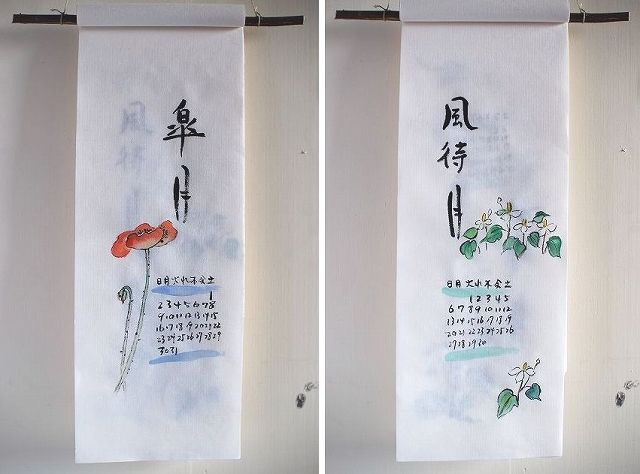 皐月
日月火水木金土
1
2 3 4 5 6 7 8
9 10 11 12 13 14 15
16 17 18 19 20 21 22
23 24 25 26 27 28 29
30 31
風待月
日月火水木金土
1 2 3 4 5
6 7 8 9 10 11 12
13 14 15 16 17 18 19
20 21 22 23 24 25 26
27 28 29 30